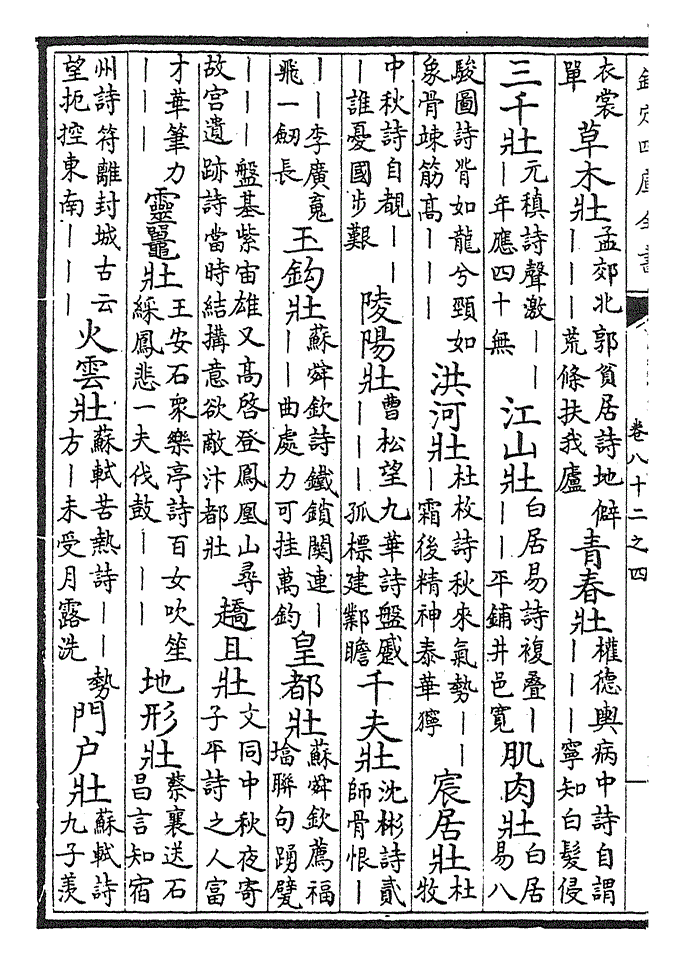 欽定四庫全書 卷八十二之四
衣裳單 草木壯 孟郊北郭貧居詩地僻｜｜｜荒條扶我廬 青春壯 權德輿病中詩自謂｜｜｜寧知白髮侵
三千壯 元稹詩聲激｜｜｜年應四十無 江山壯 白居易詩複疊｜｜｜平鋪井邑寬 肌肉壯 白居易八
駿圖詩背如龍兮頸如象骨竦筋高｜｜｜ 洪河壯 杜枚詩秋來氣勢｜｜｜霜後精神泰華獰 宸居壯 杜牧
中秋詩自覩｜｜｜誰憂國步艱 陵陽壯 曹松望九華詩盤蹙｜｜｜孤標建鄴瞻 千夫壯 沈彬詩貳師骨恨｜
｜｜李廣䰟飛一劒長 王鈎壯 蘇舜欽詩鐵鎖関連｜｜｜曲處力可挂萬鈞 皇都壯 蘇舜欽薦福塔聯句踴躄
｜｜｜盤基紫宙雄又高啓登鳳凰山尋故宫遺跡詩當時結搆意欲敵汴都壯 趫且壯 文同中秋夜寄子平詩之人富
才華筆力｜｜｜ 靈鼉壯 王安石衆樂亭詩百女吹笙綵鳳悲一夫伐鼓｜｜｜ 地形壯 蔡襄送石昌言知宿
州詩符離封城古云望扼控東南｜｜｜ 火雲壯 蘇軾苦熱詩｜｜勢方｜未受月露洗 門户壯 蘇軾詩九子羨